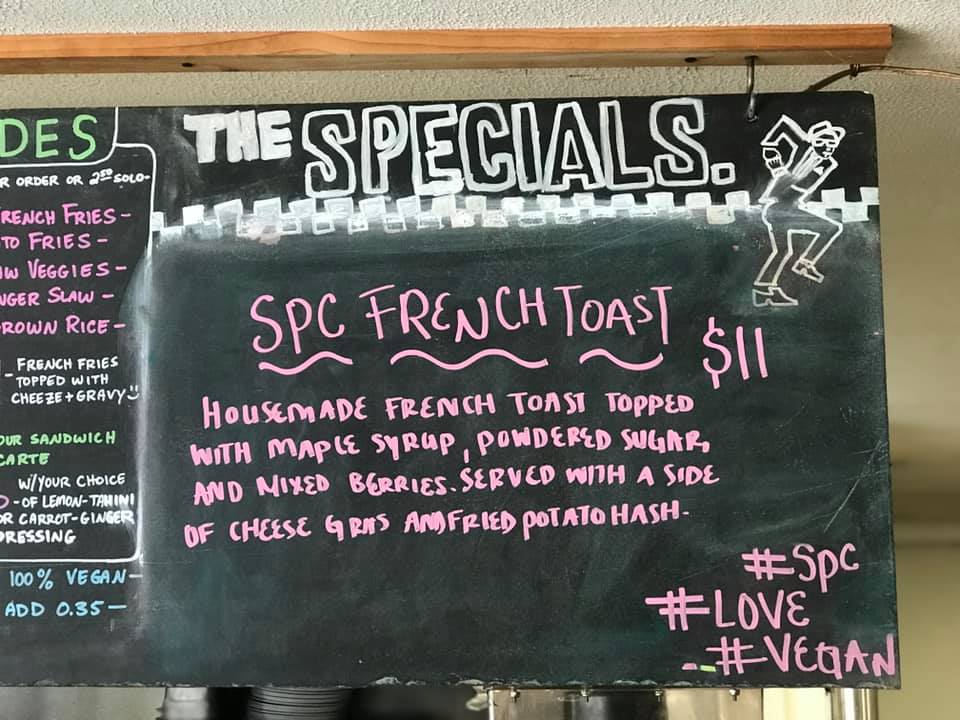 DES
R ORDER OR 2.50 SOLO-
FRENCH FRIES -
TO FRIES -
AW VEGGIES -
NGER SLAW -
ROWN RICE -
- FRENCH FRIES
TOPPED WITH
CHEEZE + GRAVY
OUR SANDWICH
CARTE
W/YOUR CHOICE
- OF LEMON-TAHINI
OR CARROT-GINGER
DRESSING
100% VEGAN -
ADD 0.35 -
THE SPECIALS.
SPC FRENCH TOAST
$11
HOUSEMADE FRENCH TOAST TOPPED
WITH MAPLE SYRUP, POWDERED SUGAR,
AND MIXED BERRIES. SERVED WITH A SIDE
OF CHEESE GRITS AND FRIED POTATO HASH.
#SPC
#LOVE
#VEGAN